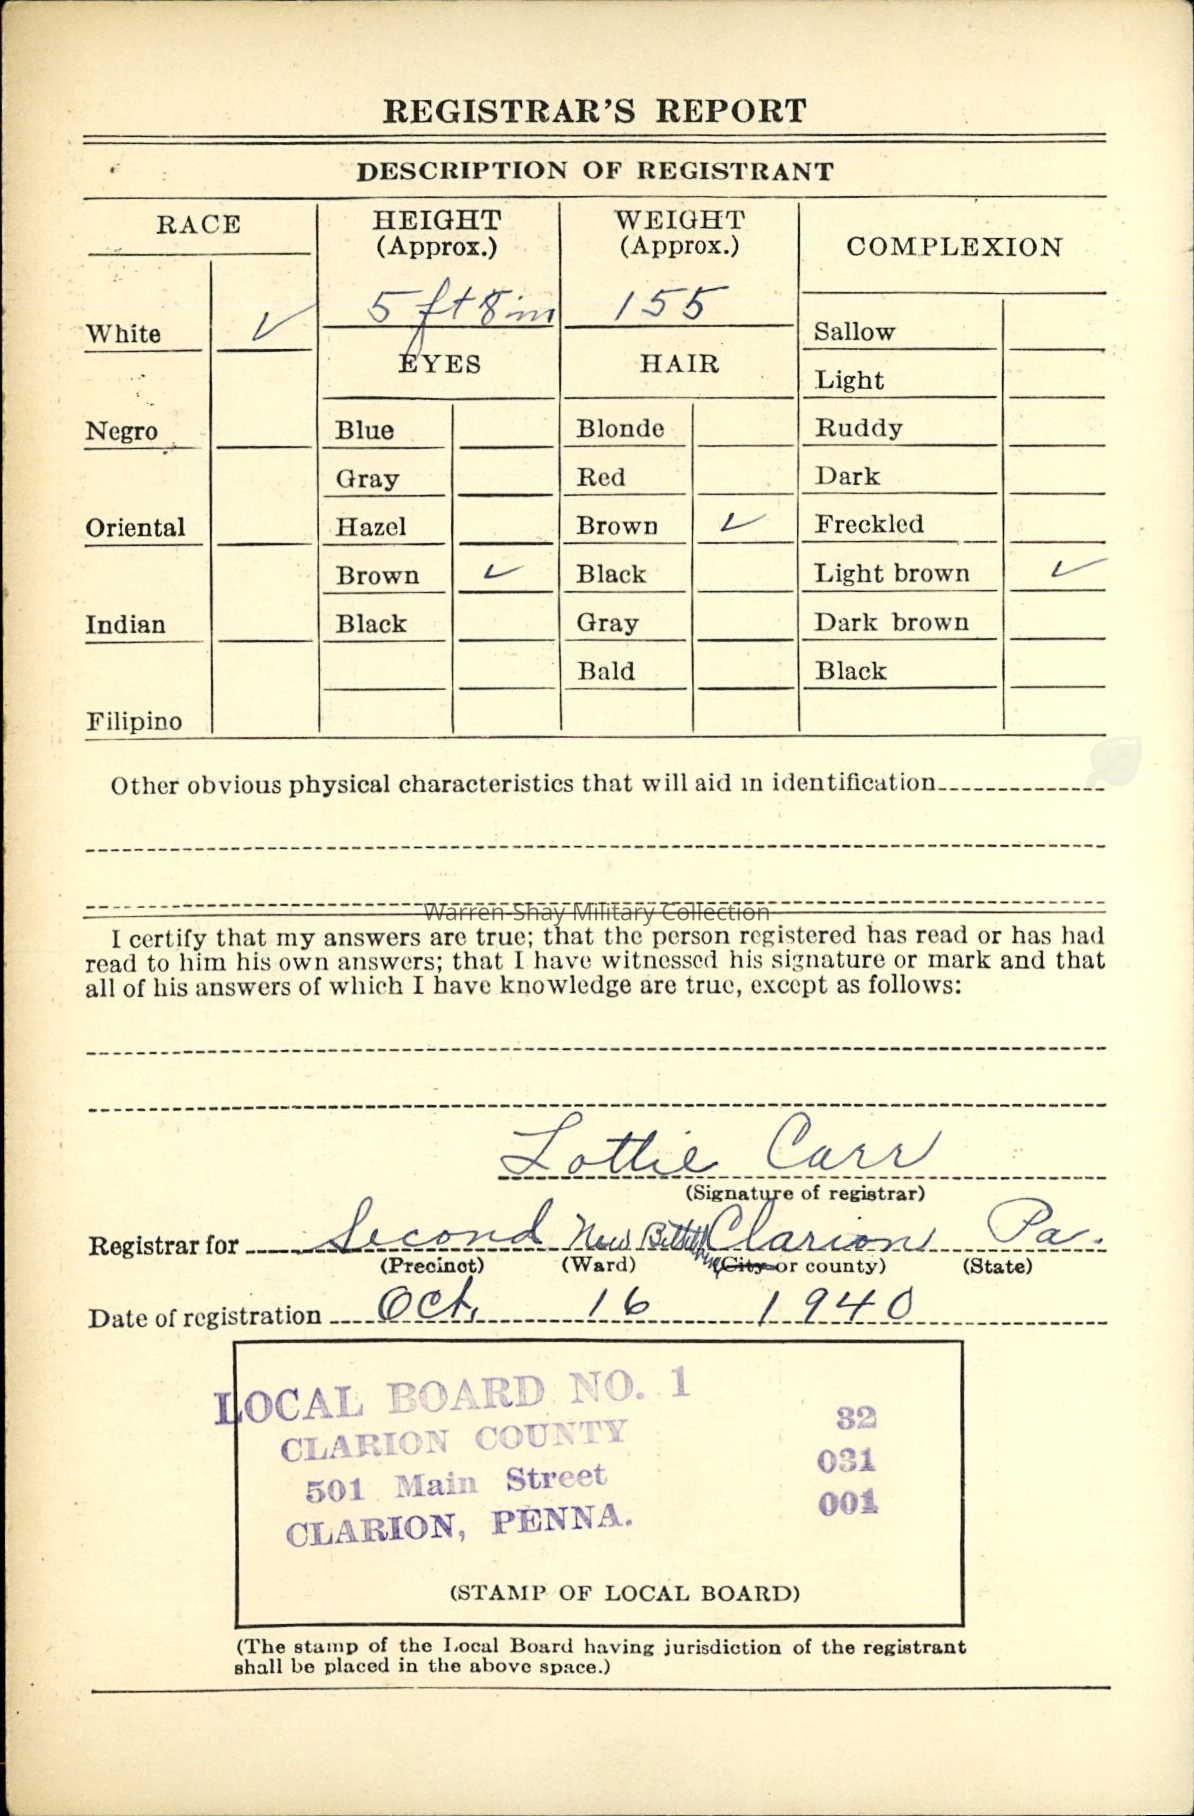 REGISTRAR'S REPORT
DESCRIPTION OF REGISTRANT
RACE
White ✓
Negro
Oriental
Indian
Filipino
HEIGHT
(Approx.)
5 ft 8 in
WEIGHT
(Approx.)
155
EYES
Blue
Gray
Hazel
Brown ✓
Black
HAIR
Blonde
Red
Brown ✓
Black
Gray
Bald
COMPLEXION
Sallow
Light
Ruddy
Dark
Freckled
Light brown ✓
Dark brown
Black
Other obvious physical characteristics that will aid in identification
Warren-Shay Military Collection
I certify that my answers are true; that the person registered has read or has had
read to him his own answers; that I have witnessed his signature or mark and that
all of his answers of which I have knowledge are true, except as follows:
Lottie Carr
(Signature of registrar)
Registrar for Second New Clarion Pa.
(Precinct) (Ward) (City or county) (State)
Date of registration Oct. 16 1940
LOCAL BOARD NO. 1
CLARION COUNTY 32
501 Main Street 031
CLARION, PENNA. 001
(STAMP OF LOCAL BOARD)
(The stamp of the Local Board having jurisdiction of the registrant
shall be placed in the above space.)